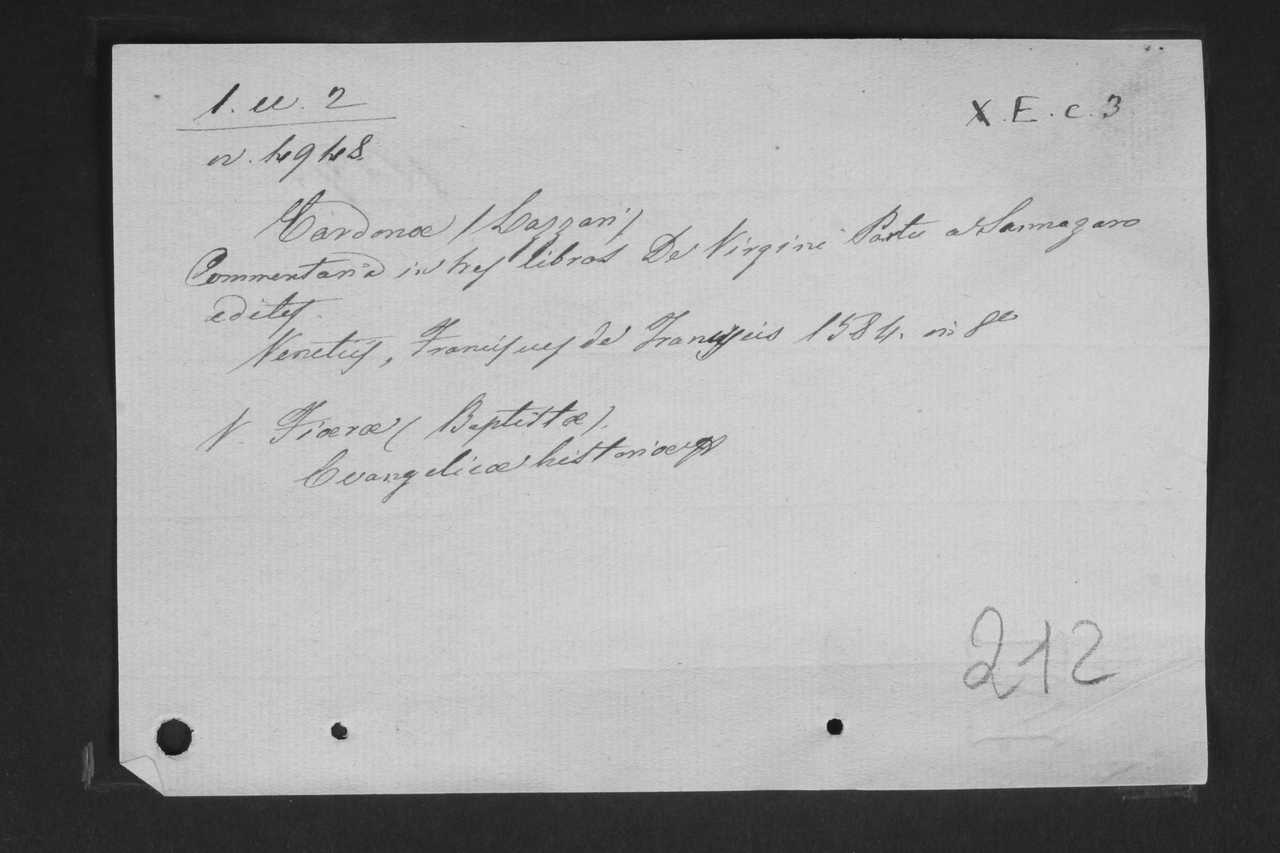 1. u. 2
X. E. c. 3
n. 4948
Cardonæ (Lazzari)
Commentaria in tres libros De Virginis Partu a Sannazaro
editos.
Venetiis, Franciscus de Franciscis 1584. in 8º
V. Fiæræ (Baptistæ).
Evangelicæ historiæ
212